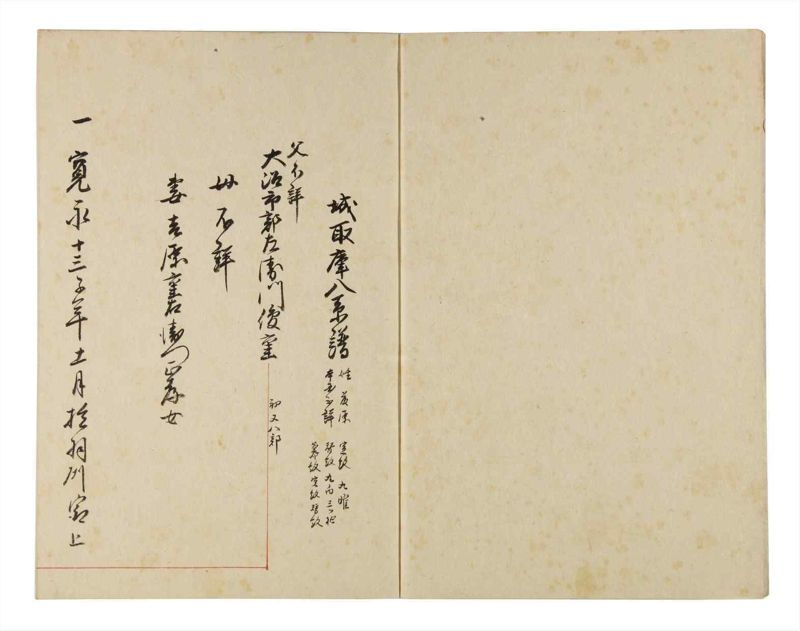 城取庫八系譜
姓藤原
本国不詳
定紋 九曜
替紋 丸内三ツ
幕紋 定紋 替紋
父不詳
大沼市郎左衛門俊重
初又八郎
母不詳
妻 吉原
女
一 寛永十三子年十一月於羽州
上